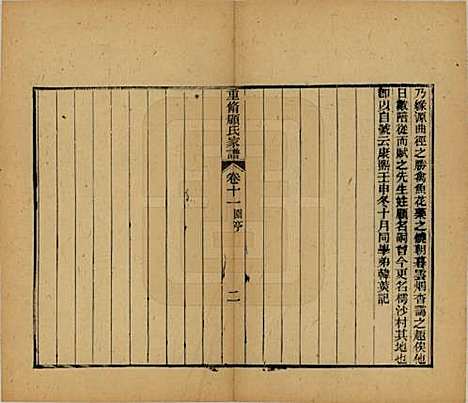 乃緣源曲徑之勝禽魚花藥之饒朝暮雲烟杳靄之趣俟他
日數陪從而賦之先生姓顧名嗣曾今更名樗沙村其地也
卽以自號云康熙壬申冬十月同學弟韓菼記
重脩顧氏家譜
卷十一 園亭
二